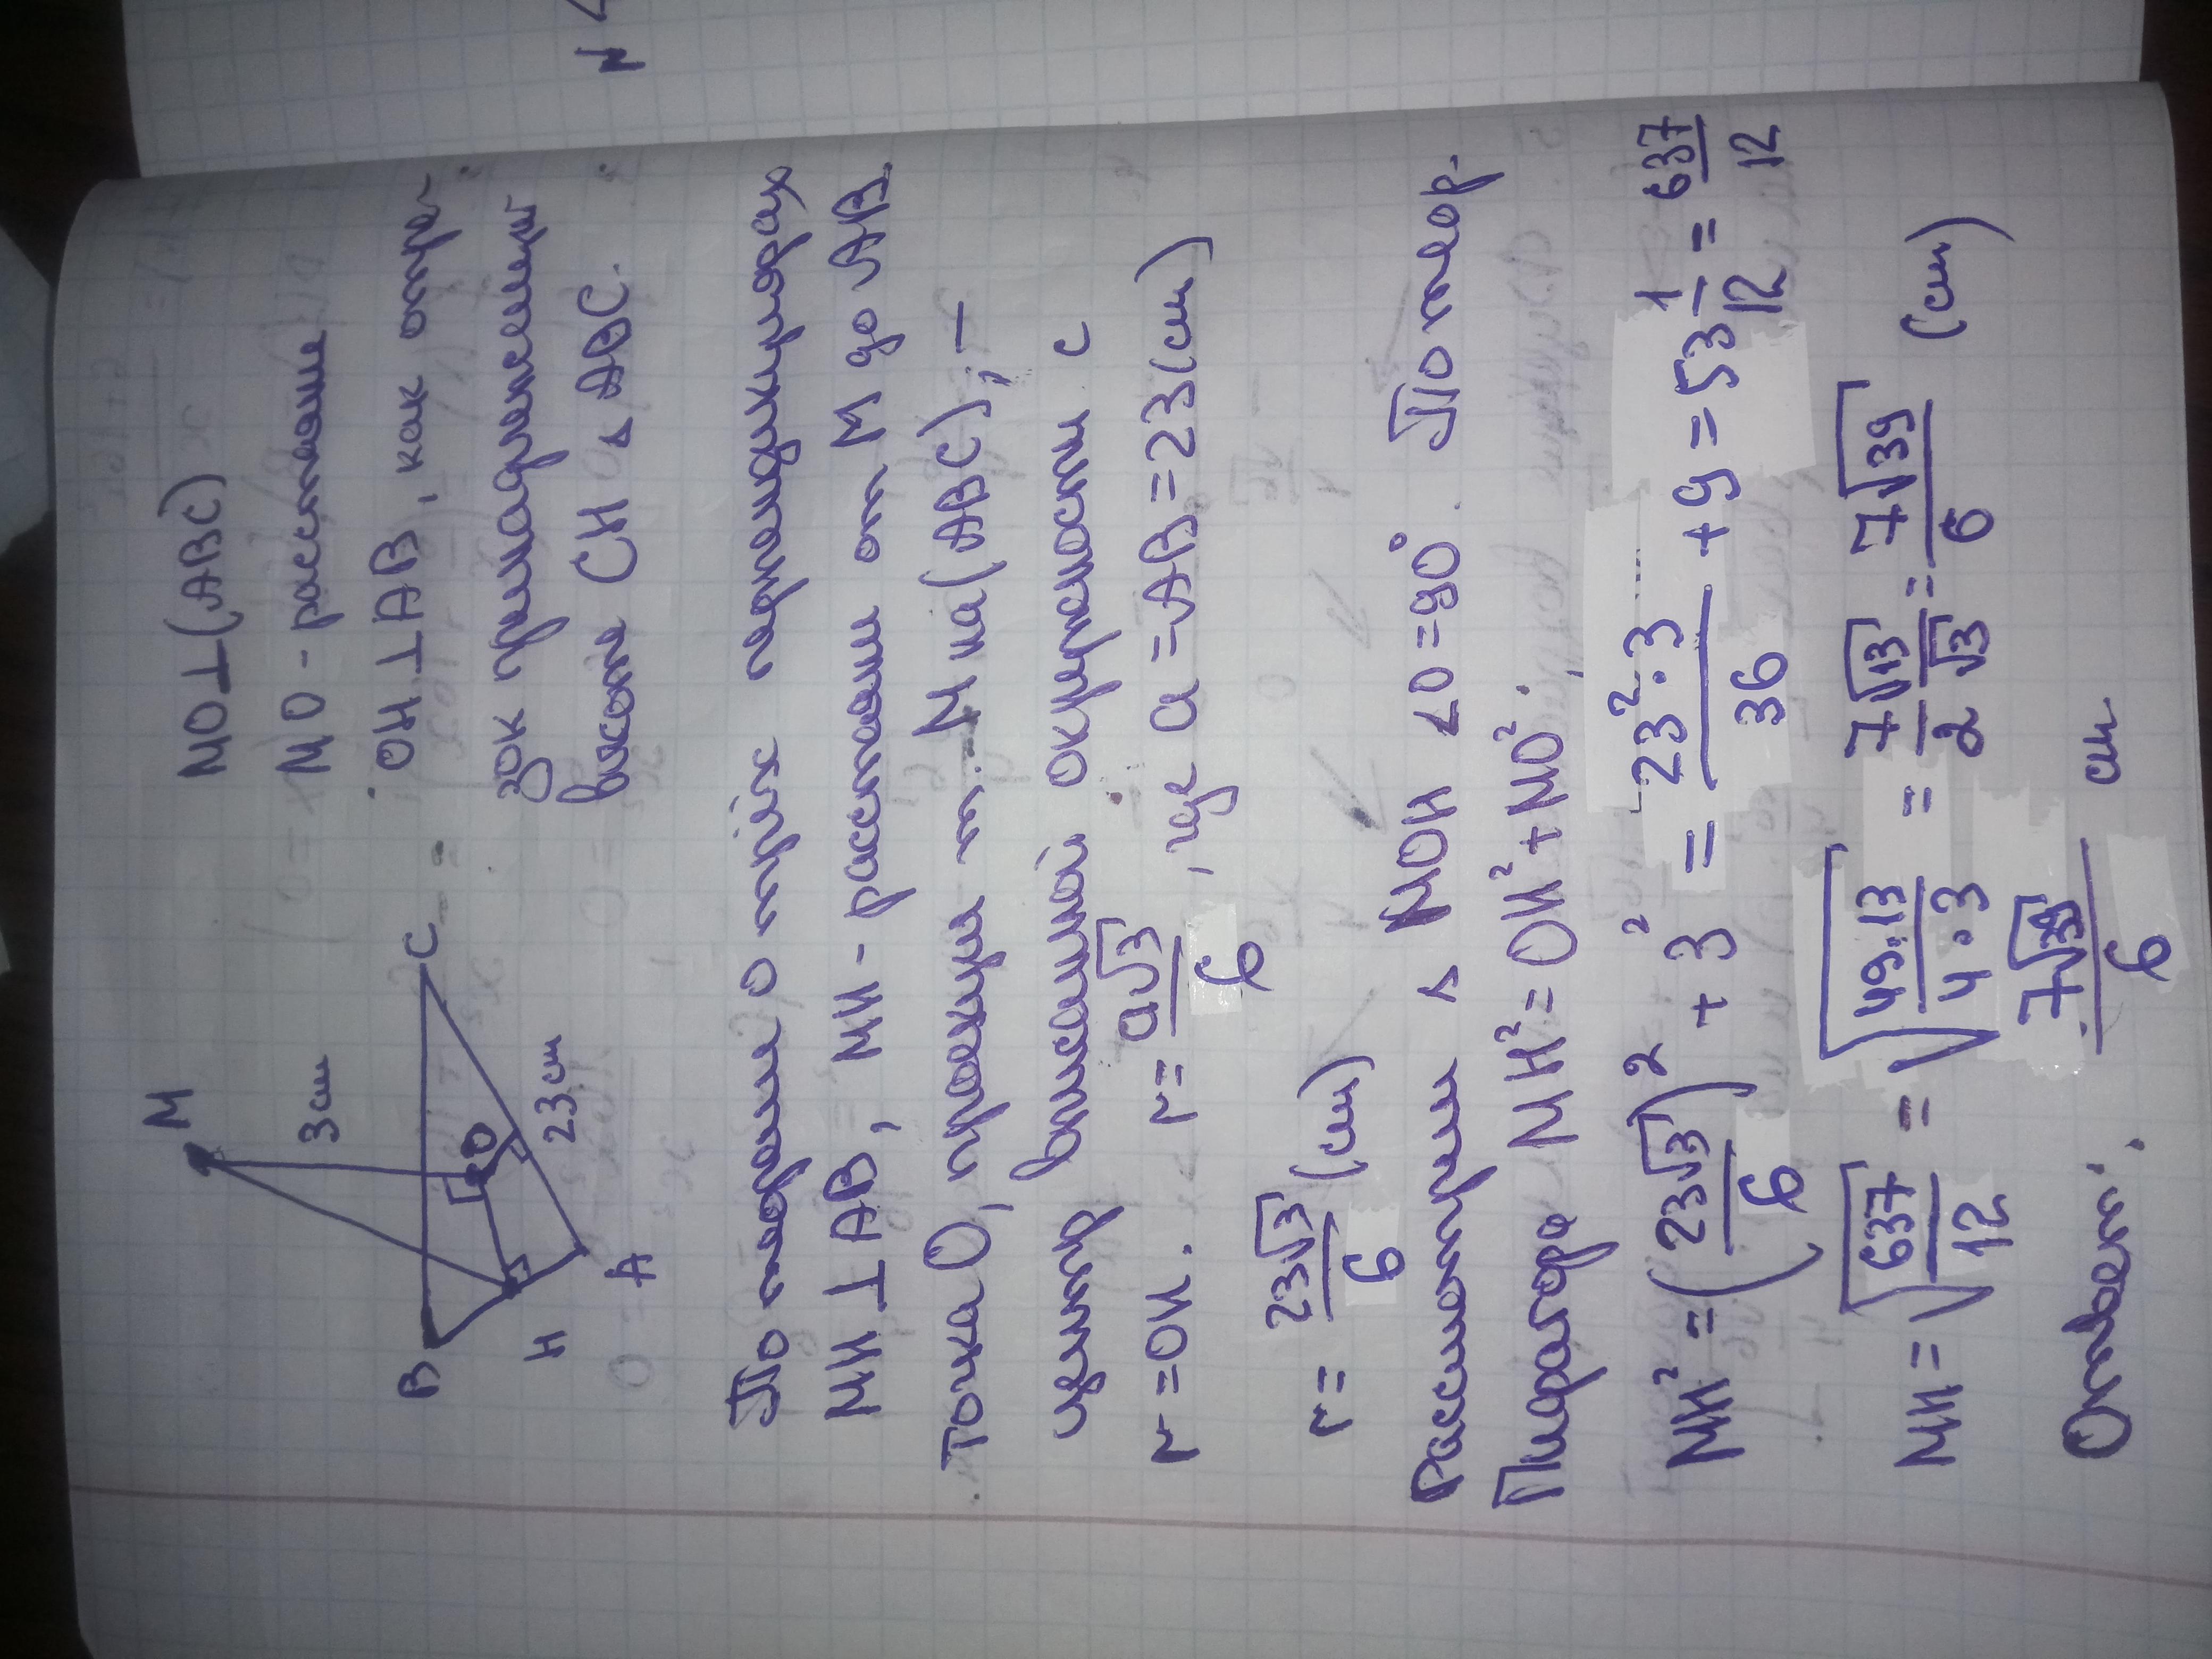 N
M
3 см
B
C
O
H
23 см
A
MO⊥(ABC)
MO - расстояние
OH⊥AB, как отре-
зок принадлежащий
высоте CH △ ABC.
По теореме о трёх перпендикулярах
MH⊥AB, MH - расстояние от M до AB.
Точка O, проекция т. M на (ABC), -
центр вписанной окружности с
r = OH. r = a√3/6, где a = AB = 23 (см)
r = 23√3/6 (см)
Рассмотрим △ MOH ∠O = 90°. По теор.
Пифагора MH² = OH² + MO².
MH² = (23√3/6)² + 3² = 23²·3/36 + 9 = 53 1/12 = 637/12
MH = √(637/12) = √(49·13/4·3) = 7√13/2√3 = 7√39/6 (см)
Ответ: 7√39/6 см